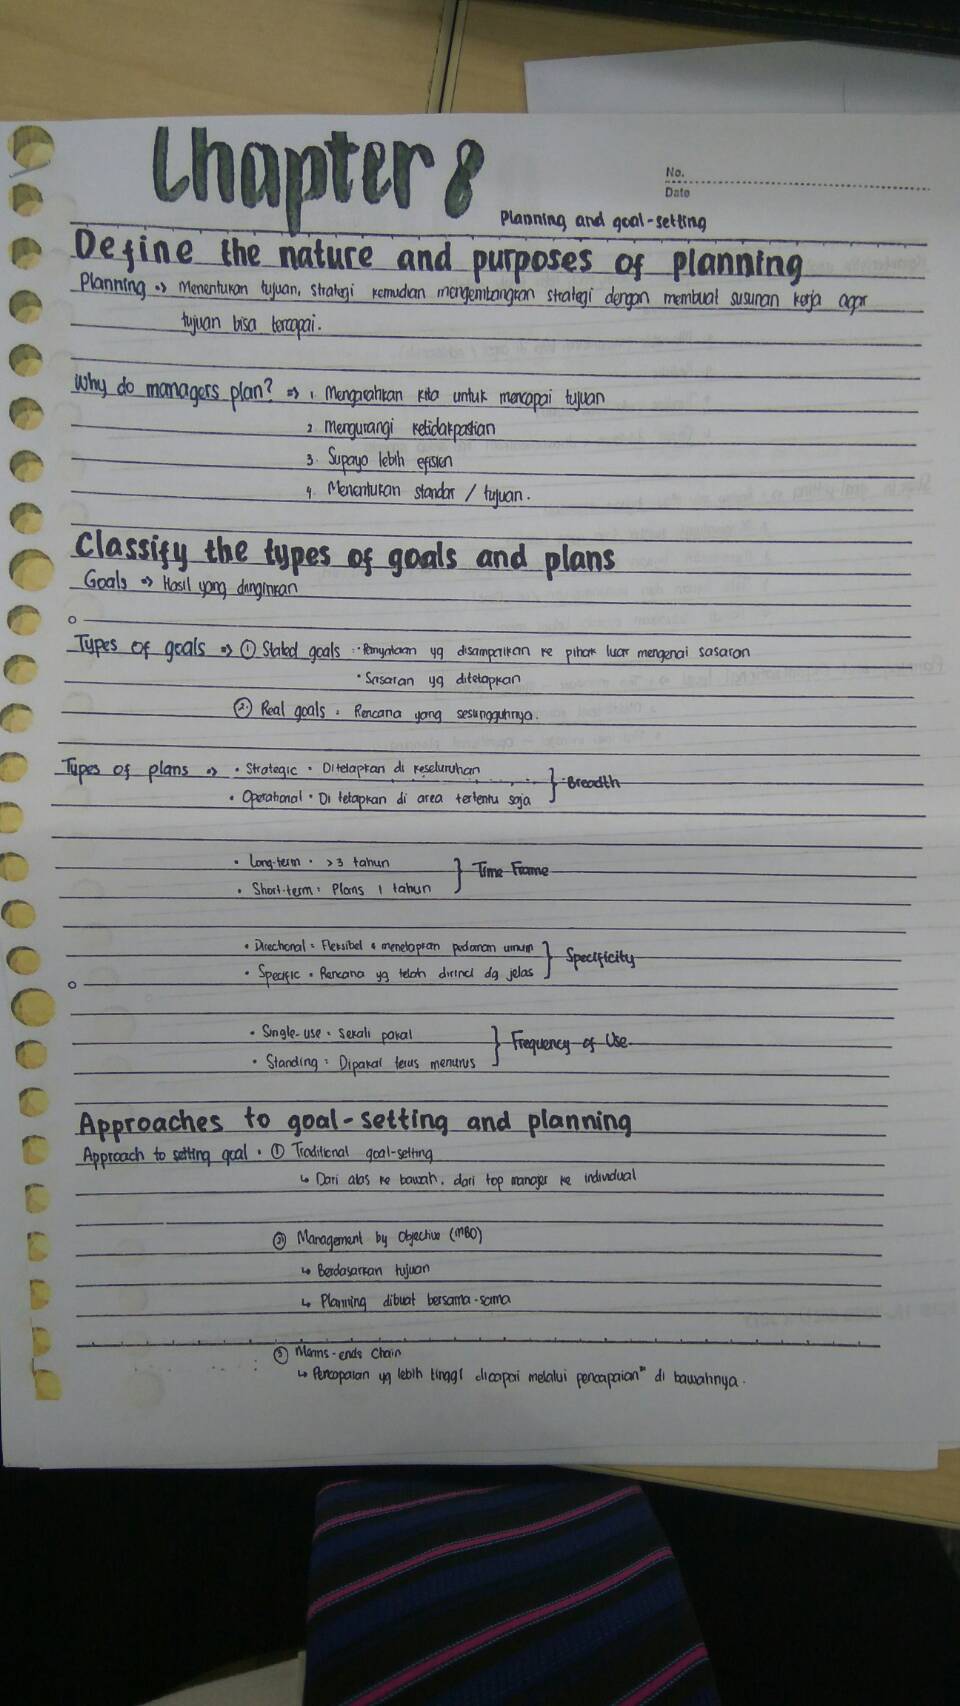 Chapter 8
No.
Date
Planning and goal-setting
Define the nature and purposes of planning
Planning => Menentukan tujuan, strategi kemudian mengembangkan strategi dengan membuat susunan kerja agar
tujuan bisa tercapai.
Why do managers plan? => 1. Mengarahkan kita untuk mencapai tujuan
2. Mengurangi ketidakpastian
3. Supaya lebih efisien
4. Menentukan standar / tujuan.
Classify the types of goals and plans
Goals => Hasil yang diinginkan
Types of goals => ① Stated goals : · Pernyataan yg disampaikan ke pihak luar mengenai sasaran
· Sasaran yg ditetapkan
② Real goals : Rencana yang sesungguhnya.
Types of plans => · Strategic : Ditetapkan di keseluruhan } Breadth
· Operational : Di tetapkan di area tertentu saja
· Long-term : >3 tahun } Time Frame
· Short-term : Plans 1 tahun
· Directional : Fleksibel & menetapkan pedoman umum } Specificity
· Specific : Rencana yg telah dirinci dg jelas
· Single-use : Sekali pakai } Frequency of Use
· Standing : Dipakai terus menurus
Approaches to goal-setting and planning
Approach to setting goal : ① Traditional goal-setting
↳ Dari atas ke bawah, dari top manajer ke individual
② Management by Objective (MBO)
↳ Berdasarkan tujuan
↳ Planning dibuat bersama-sama
③ Means-ends Chain
↳ Pencapaian yg lebih tinggi dicapai melalui pencapaian" di bawahnya.